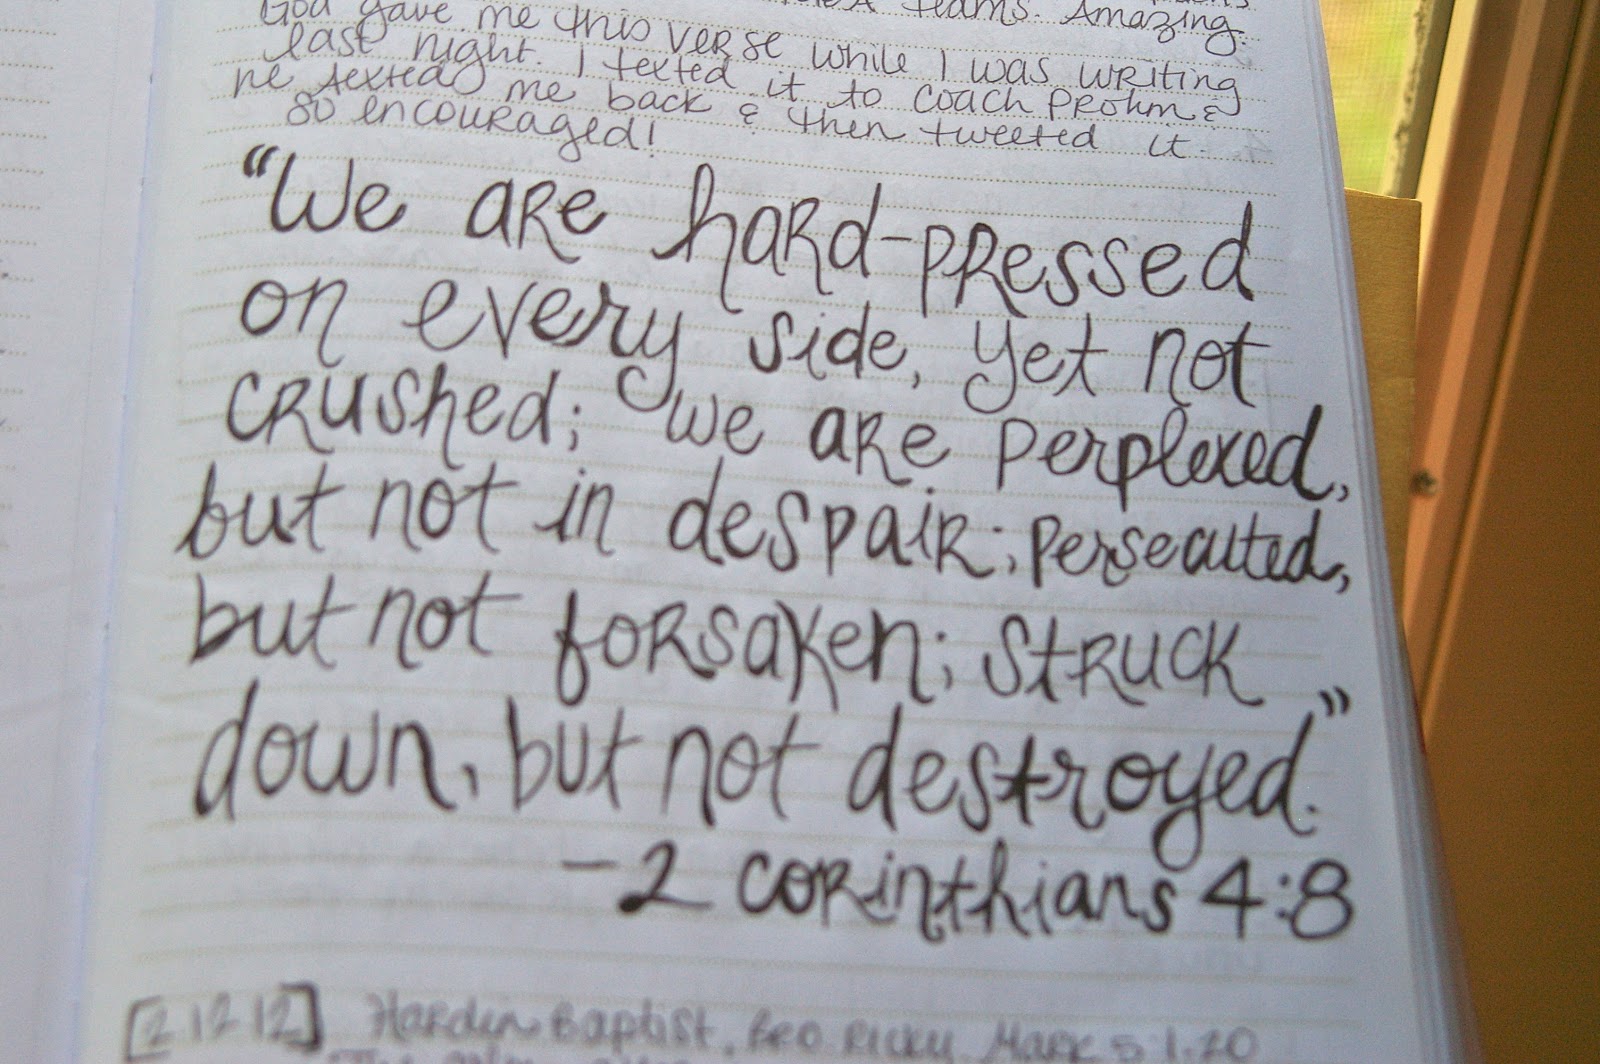 teams. Amazing.
God gave me this verse while I was writing
last night. I texted it to Coach Prohm &
he texted me back & then tweeted it.
so encouraged!
"We are hard-pressed
on every side, yet not
crushed; we are perplexed,
but not in despair; persecuted,
but not forsaken; struck
down, but not destroyed."
-2 Corinthians 4:8
[2.12.12] Hardin Baptist, Bro. Ricky, Mark 5:1-20